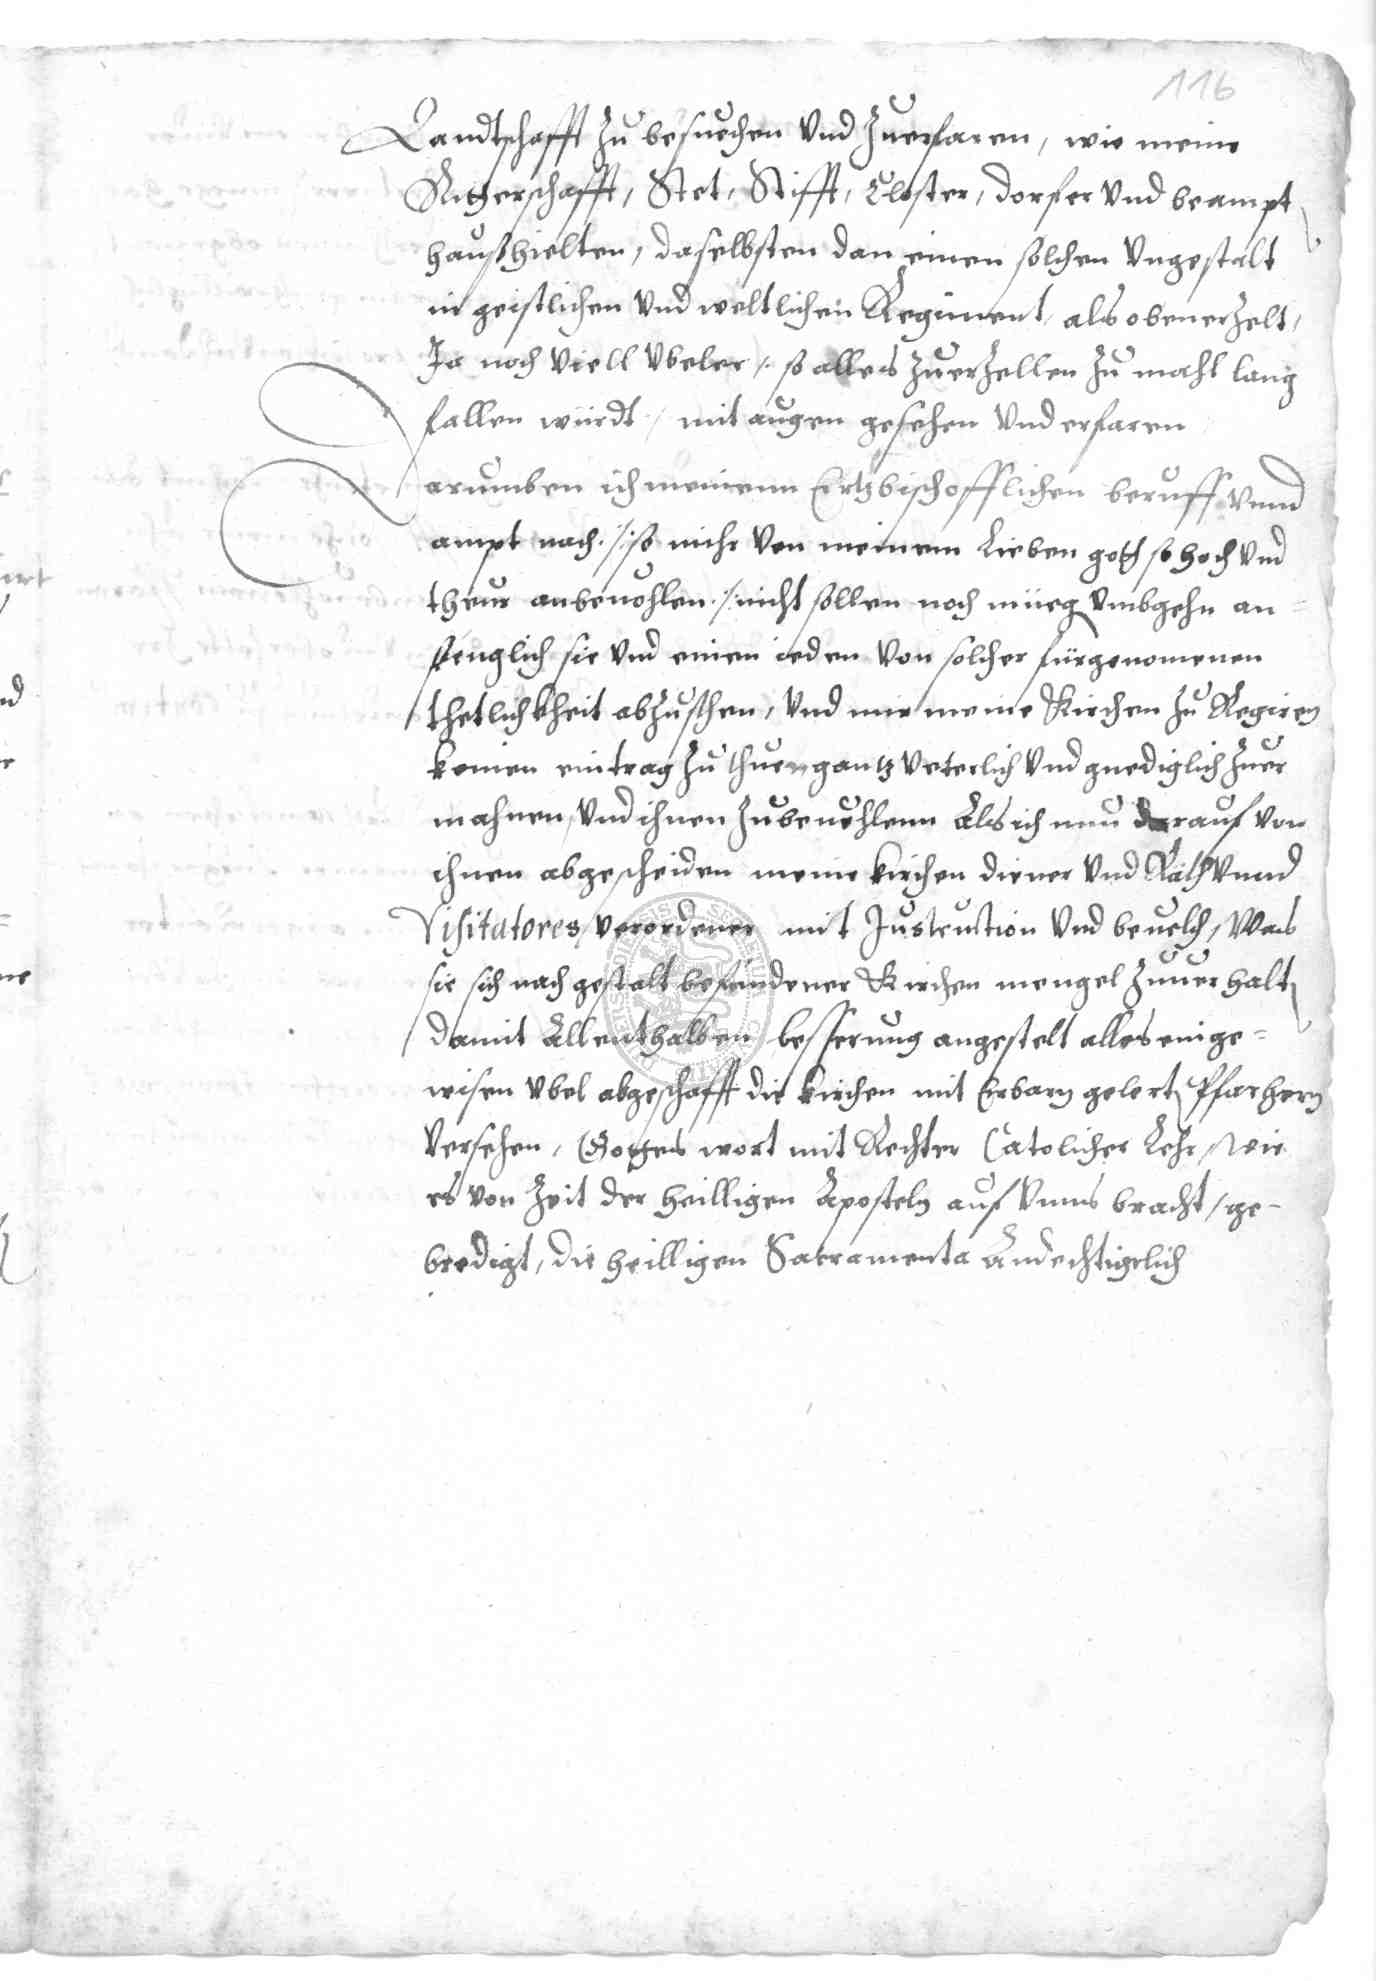 116
Landtschafft zu besuechen Vnd Zuerfaren, wie meine
Ritterschafft, Stet, Stifft, Closter, dorfer Vnd beampt
haußhielten, daselbsten dan einen solchen Vngestalt
in geistlichen Vnd weltlichen Regiment, als obenerzelt,
Ja noch Viell Vbeler /. so alles zuerzellen zu mahl lang
fallen würdt ./ mit augen gesehen Vnd erfaren
Darumben ich meinenn Ertzbischofflichen beruff Vnnd
ampt nach ./. so mihr von meinem Lieben gott so hoch Vnd
theur anbeuohlen ./. nicht sollen noch müeg Vmbgehn an=
fenglich sie Vnd einen ieden Von solcher fürgenomenen
thetlichkheit abzusthen, Vnd mir meine Kirchen zu Regiren
keinen eintrag zu thuen gantz Veterlich Vnd gnediglich Zuer
mahnen, Vnd ihnen zubeuehlenn Als ich nuu darauf Von
ihnen abgescheiden meine kirchen diener Vnd Räth Vnnd
Visitatores, Verordener mit Justruction Vnd beuelch, Was
sie sich nach gestalt befundener Kirchen mengel Zuuerhalt
damit Allenthalben besserung angestelt alles einge=
wisen Vbel abgeschafft die kirchen mit Erbarn gelert Pfarhern
Versehen, Gottes wort mit Rechter Catolicher Lehr, Wie
es Von Zeit der heilligen Aposteln auf Vnns bracht, ge-
bredigt, die heilligen Sacramenta Andechtigelich